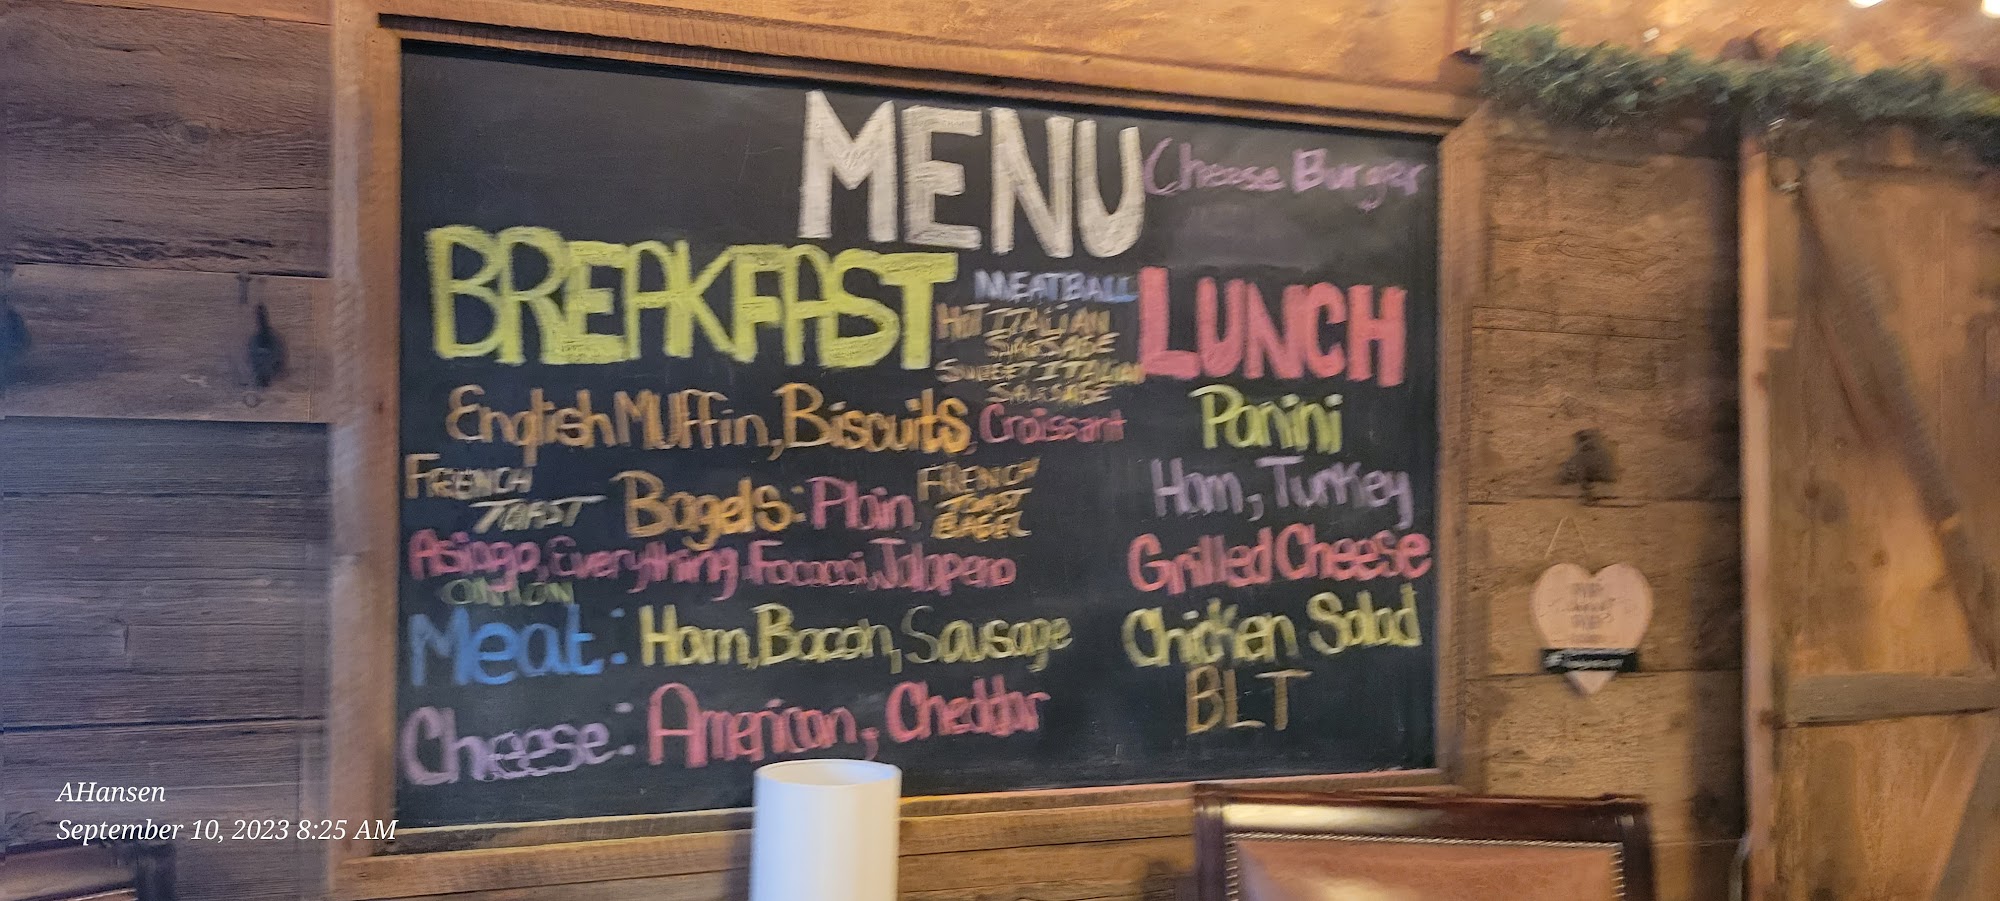 MENU
Cheese Burger
BREAKFAST
MEATBALL
HOT ITALIAN
SAUSAGE
SWEET ITALIAN
SAUSAGE
English Muffin, Biscuits, Croissant
FRENCH
TOAST
Bagels: Plain,
FRENCH
TOAST
BAGEL
Asiago, Everything, Focacci, Jalapeno
ONION
Meat: Ham, Bacon, Sausage
Cheese: American, Cheddar
LUNCH
Panini
Ham, Turkey
Grilled Cheese
Chicken Salad
BLT
AHansen
September 10, 2023 8:25 AM